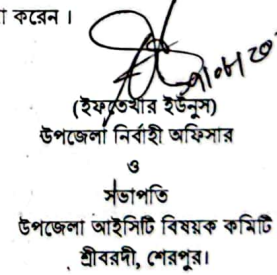 করেন।
(ইফতেখার ইউনুস)
উপজেলা নির্বাহী অফিসার
ও
সভাপতি
উপজেলা আইসিটি বিষয়ক কমিটি
শ্রীবরদী, শেরপুর।